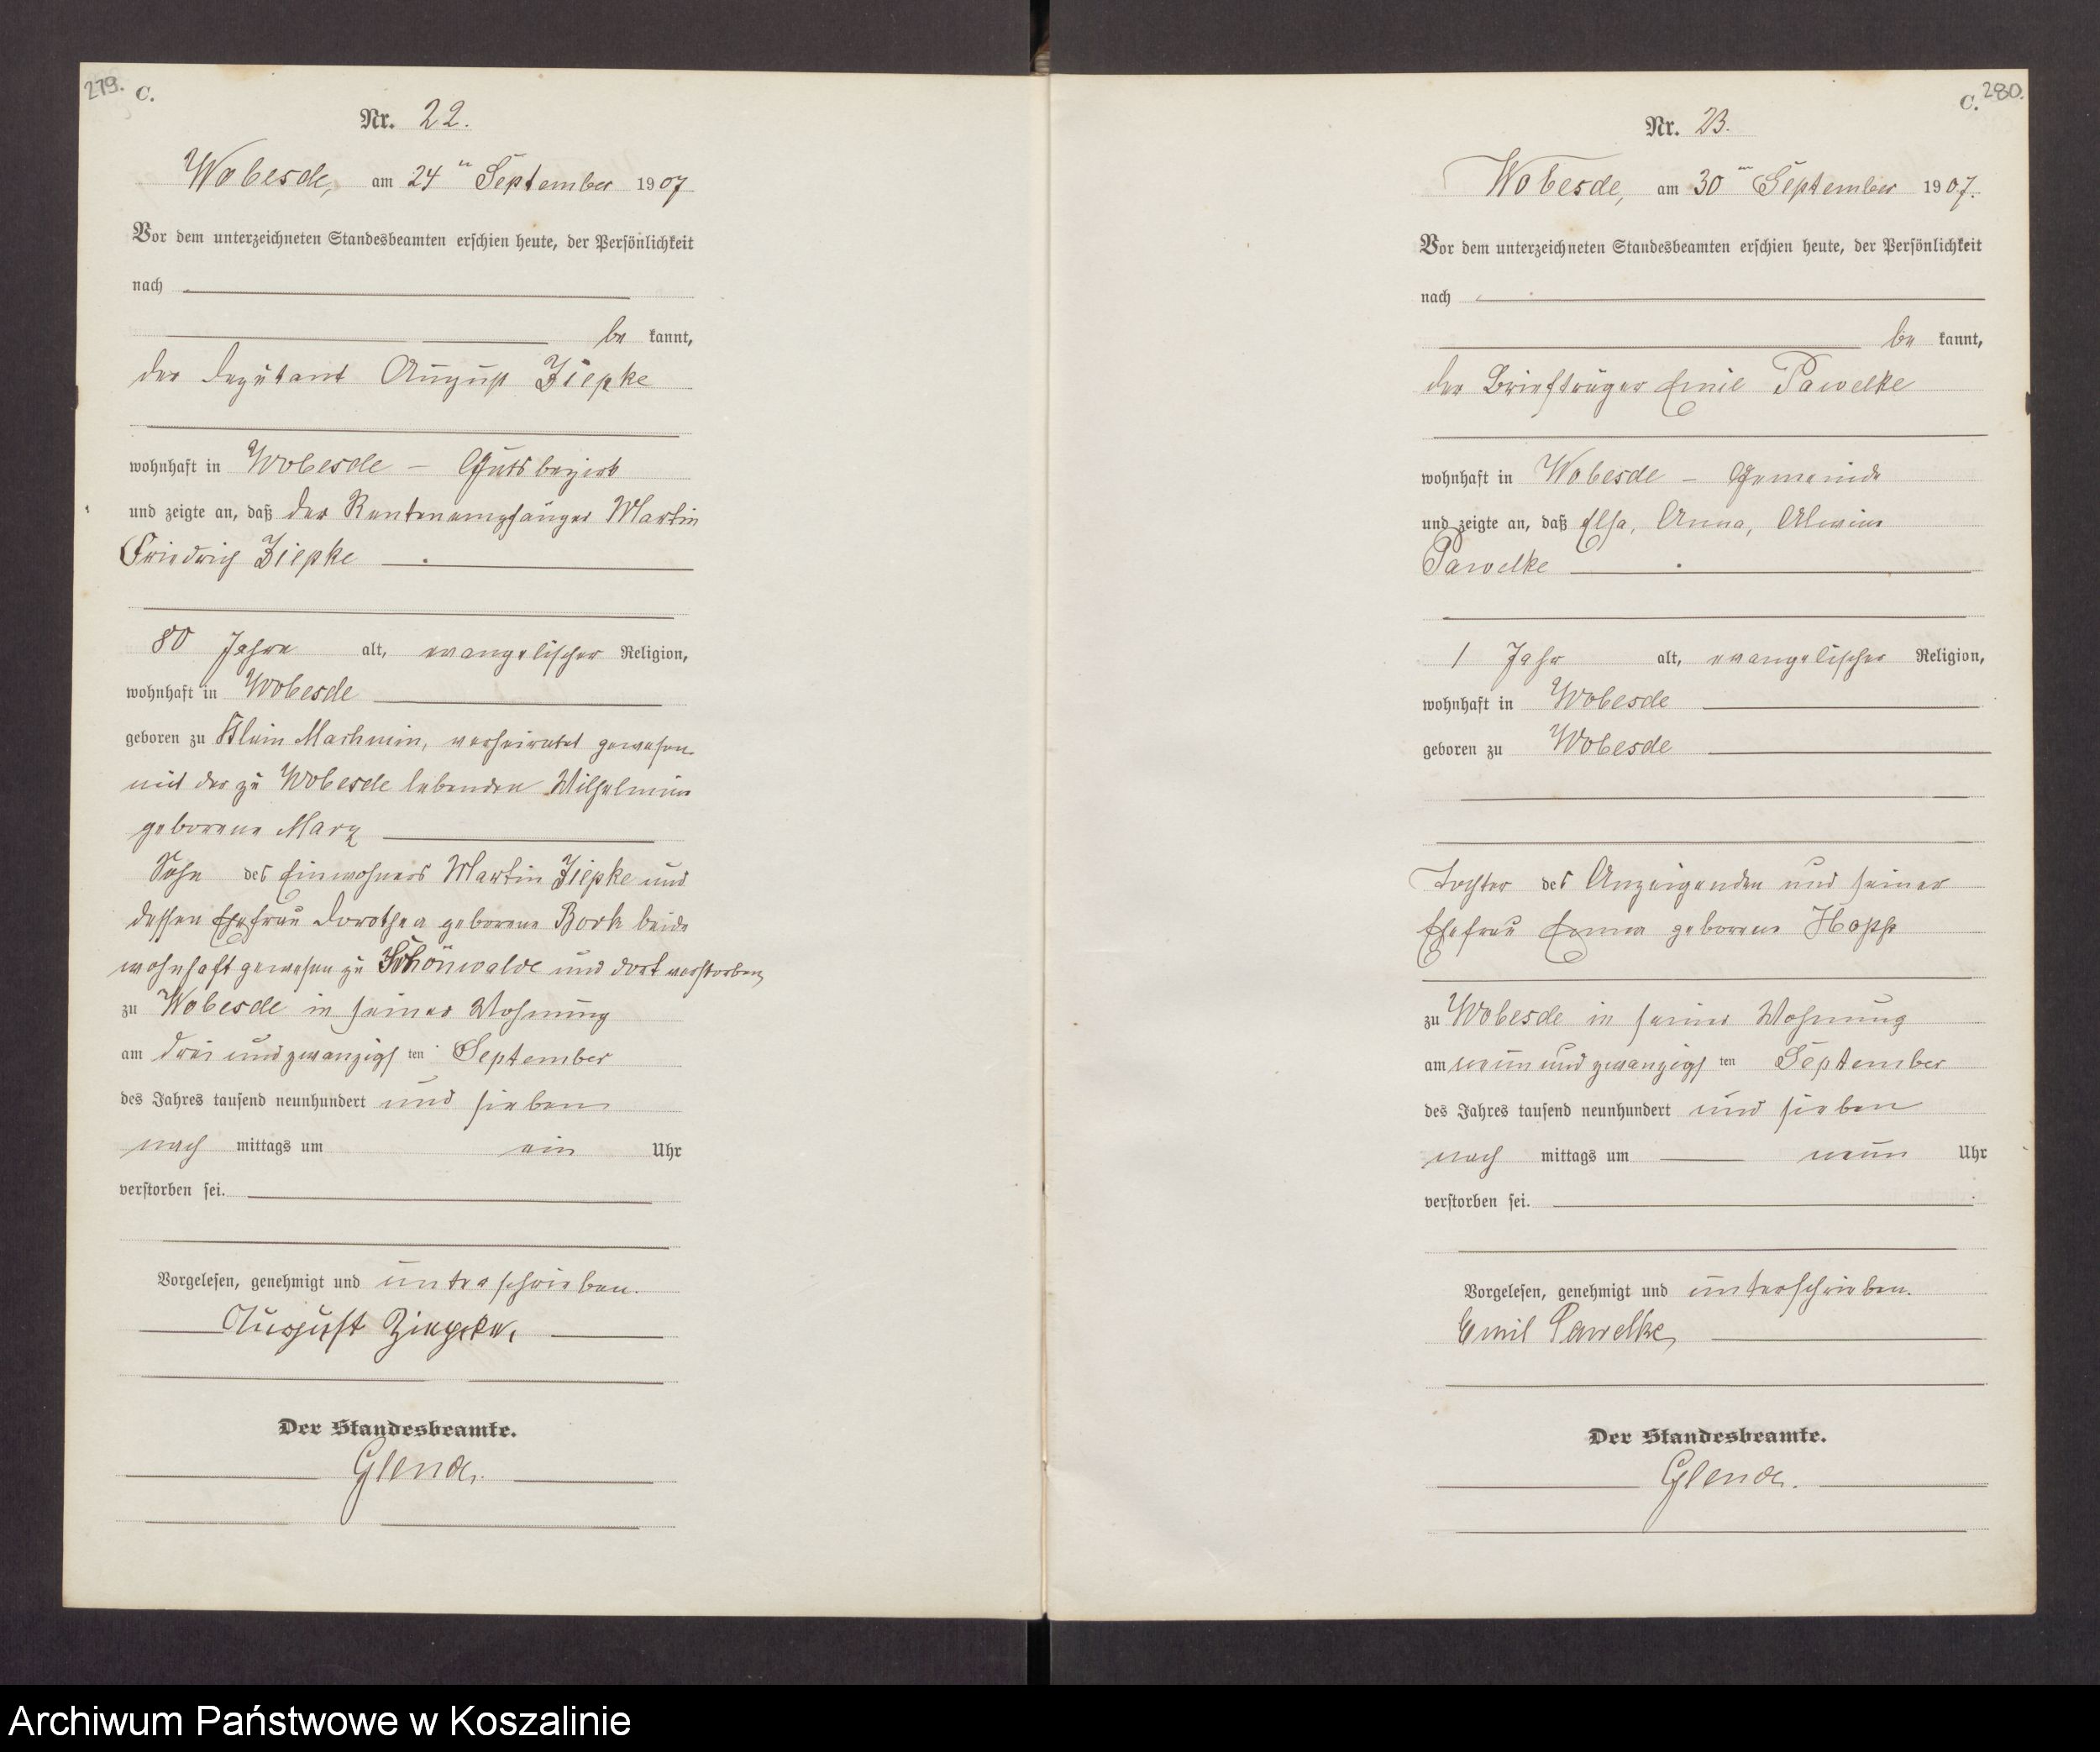 279.
C.
Nr. 22.
Wobesde, am 24ten September 1907
Vor dem unterzeichneten Standesbeamten erschien heute, der Persönlichkeit
nach
be kannt,
der Deputant August Ziepke
wohnhaft in Wobesde – Gutsbezirk
und zeigte an, daß der Rentenempfänger Martin
Friedrich Ziepke
80 Jahre alt, evangelischer Religion,
wohnhaft in Wobesde
geboren zu Klein Machmin, verheiratet gewesen
mit der zu Wobesde lebenden Wilhelmine
geborene Marz
Sohn des Einwohners Martin Ziepke und
dessen Ehefrau Dorothea geborene Bork beide
wohnhaft gewesen zu Schönwalde und dort verstorben,
zu Wobesde in seiner Wohnung
am drei und zwanzigsten September
des Jahres tausend neunhundert und sieben
nach mittags um ein Uhr
verstorben sei.
Vorgelesen, genehmigt und unterschrieben.
August Ziepke.
Der Standesbeamte.
Glende.
280.
C.
Nr. 23.
Wobesde, am 30ten September 1907.
Vor dem unterzeichneten Standesbeamten erschien heute, der Persönlichkeit
nach
be kannt,
der Briefträger Emil Pawelke
wohnhaft in Wobesde – Gemeinde
und zeigte an, daß Elsa, Anna, Alwine
Pawelke
1 Jahr alt, evangelischer Religion,
wohnhaft in Wobesde
geboren zu Wobesde
Tochter des Anzeigenden und seiner
Ehefrau Emma geborene Hopp
zu Wobesde in seiner Wohnung
am neun und zwanzigsten September
des Jahres tausend neunhundert und sieben
nach mittags um neun Uhr
verstorben sei.
Vorgelesen, genehmigt und unterschrieben.
Emil Pawelke
Der Standesbeamte.
Glende.
Archiwum Państwowe w Koszalinie